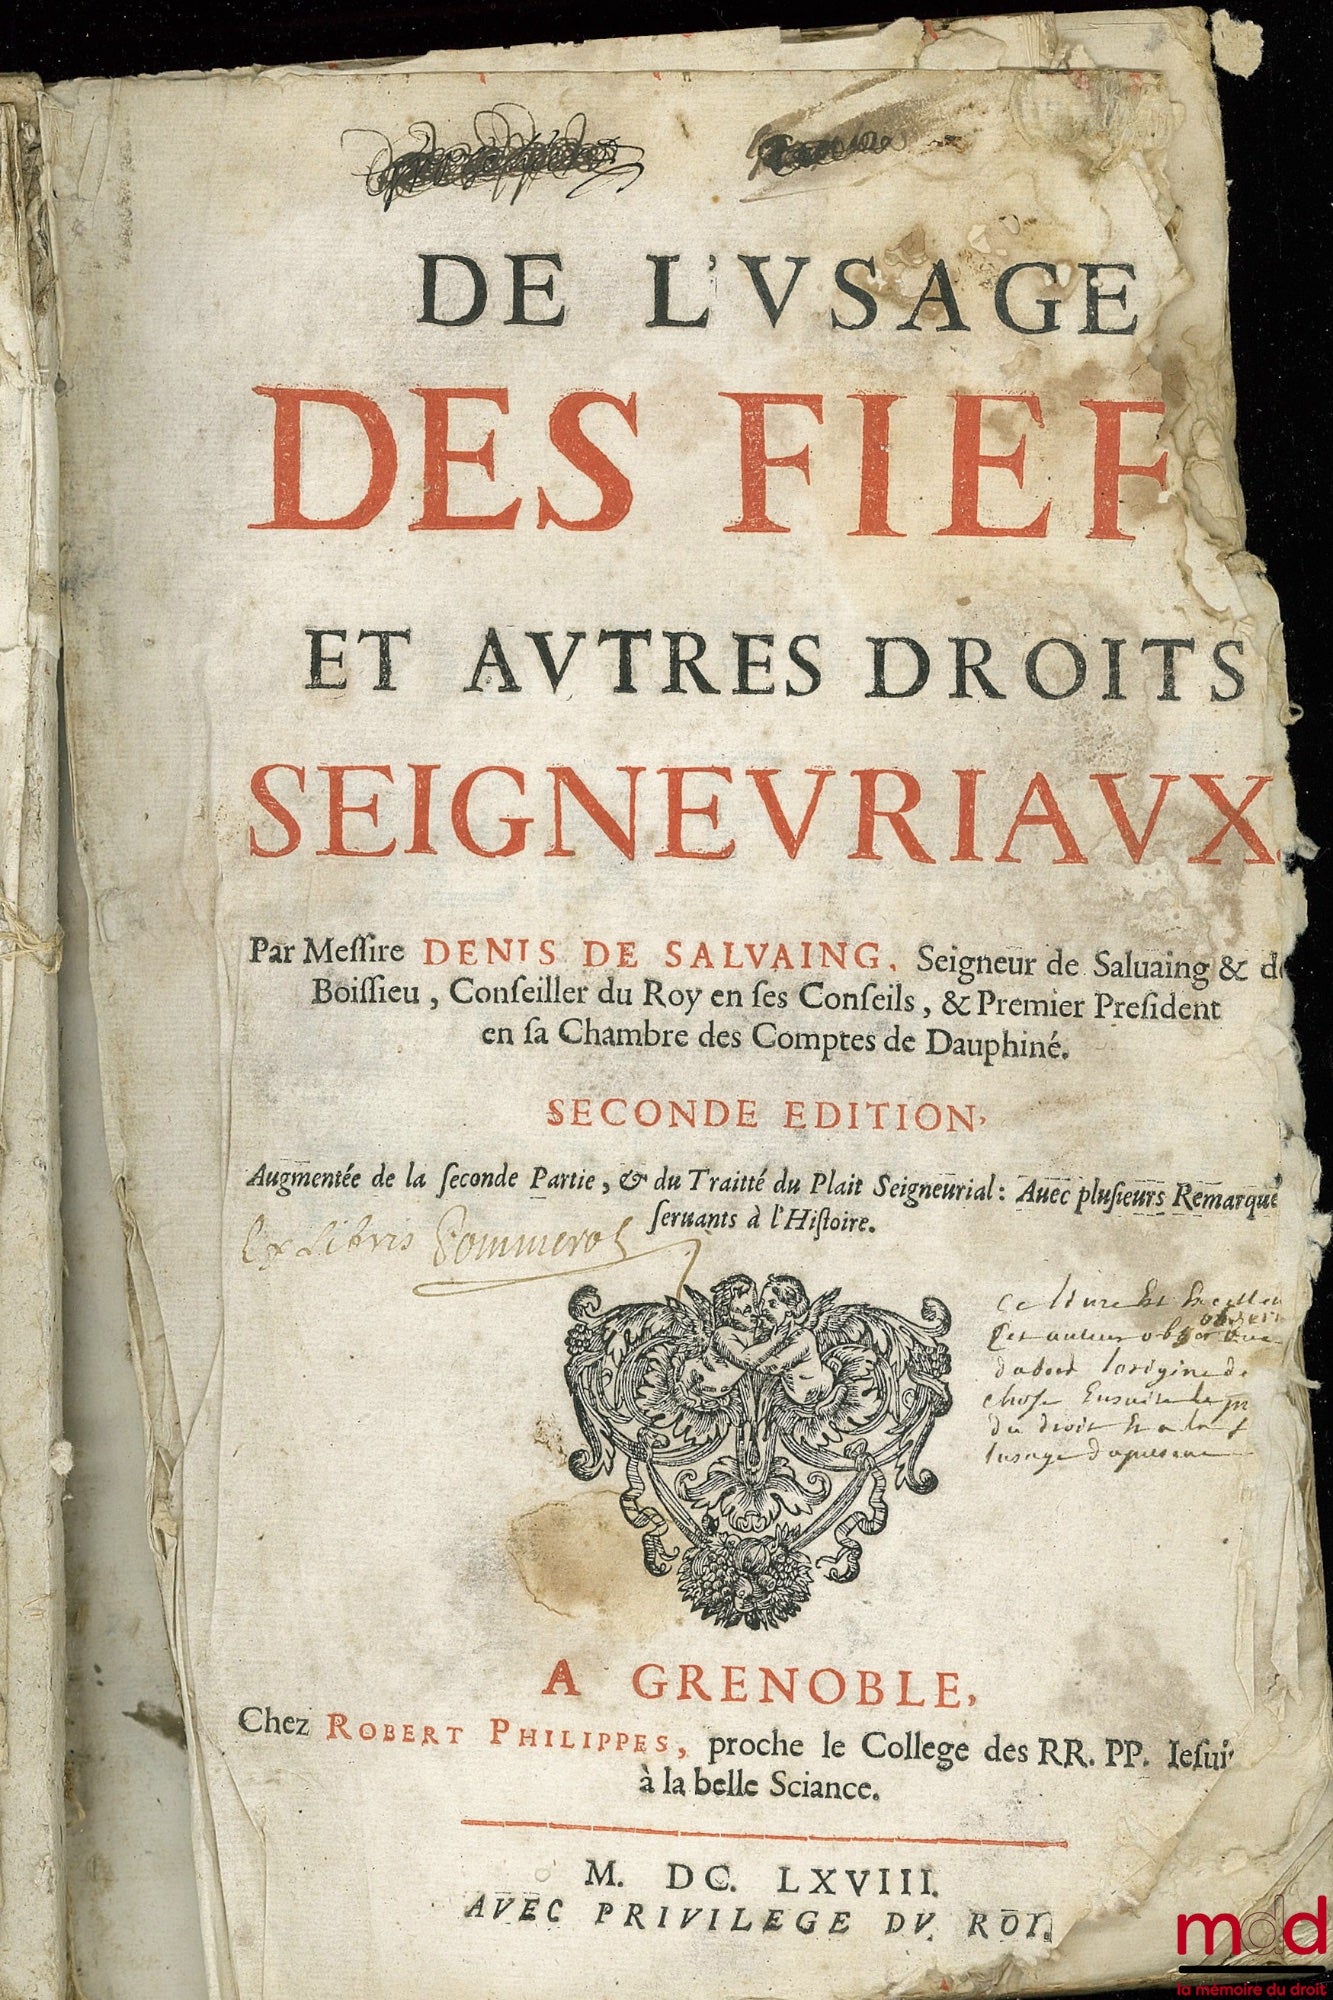 DE L'VSAGE
DES FIEF
ET AVTRES DROITS
SEIGNEVRIAVX
Par Meſſire DENIS DE SALVAING, Seigneur de Saluaing & de
Boiſſieu, Conſeiller du Roy en ſes Conſeils, & Premier Preſident
en ſa Chambre des Comptes de Dauphiné.
SECONDE EDITION,
Augmentée de la ſeconde Partie, & du Traitté du Plait Seigneurial: Auec pluſieurs Remarque
ſeruants à l'Hiſtoire.
Ex Libris Pommerol
Ce liure Est Excellen
Cet auteur
dabord lorigine de
chose Ensuite le
du droit Et a la
lusage
A GRENOBLE,
Chez ROBERT PHILIPPES, proche le College des RR. PP. Ieſui
à la belle Sciance.
M. DC. LXVIII.
AVEC PRIVILEGE DV ROY.
mdd
la mémoire du droit